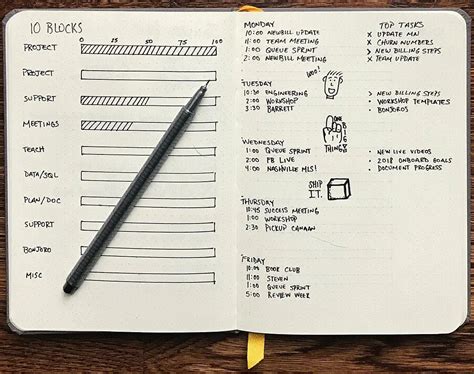 10 BLOCKS
0 25 50 75 100
PROJECT
PROJECT
SUPPORT
MEETINGS
TEACH
DATA/SQL
PLAN/DOC
SUPPORT
BONJORO
MISC
MONDAY
10:00 NEWBILL UPDATE
11:00 TEAM MEETING
1:00 QUEUE SPRINT
2:00 NEWBILL MEETING
TOP TASKS
X UPDATE MN
X CHURN NUMBERS
> NEW BILLING STEPS
X TEAM UPDATE
WOO!
TUESDAY
10:30 ENGINEERING
2:00 WORKSHOP
3:30 BARRETT
> NEW BILLING STEPS
• WORKSHOP TEMPLATES
• BONJOROS
BIG
THING!
WEDNESDAY
1:00 QUEUE SPRINT
2:00 FB LIVE
4:00 NASHVILLE MLS!
• NEW LIVE VIDEOS
• 2018 ONBOARD GOALS
• DOCUMENT PROGRESS
SHIP
IT.
THURSDAY
10:45 SUCCESS MEETING
1:00 WORKSHOP
2:30 PICKUP CANAAN
FRIDAY
10:00 BOOK CLUB
11:00 STEVEN
1:00 QUEUE SPRINT
5:00 REVIEW WEEK